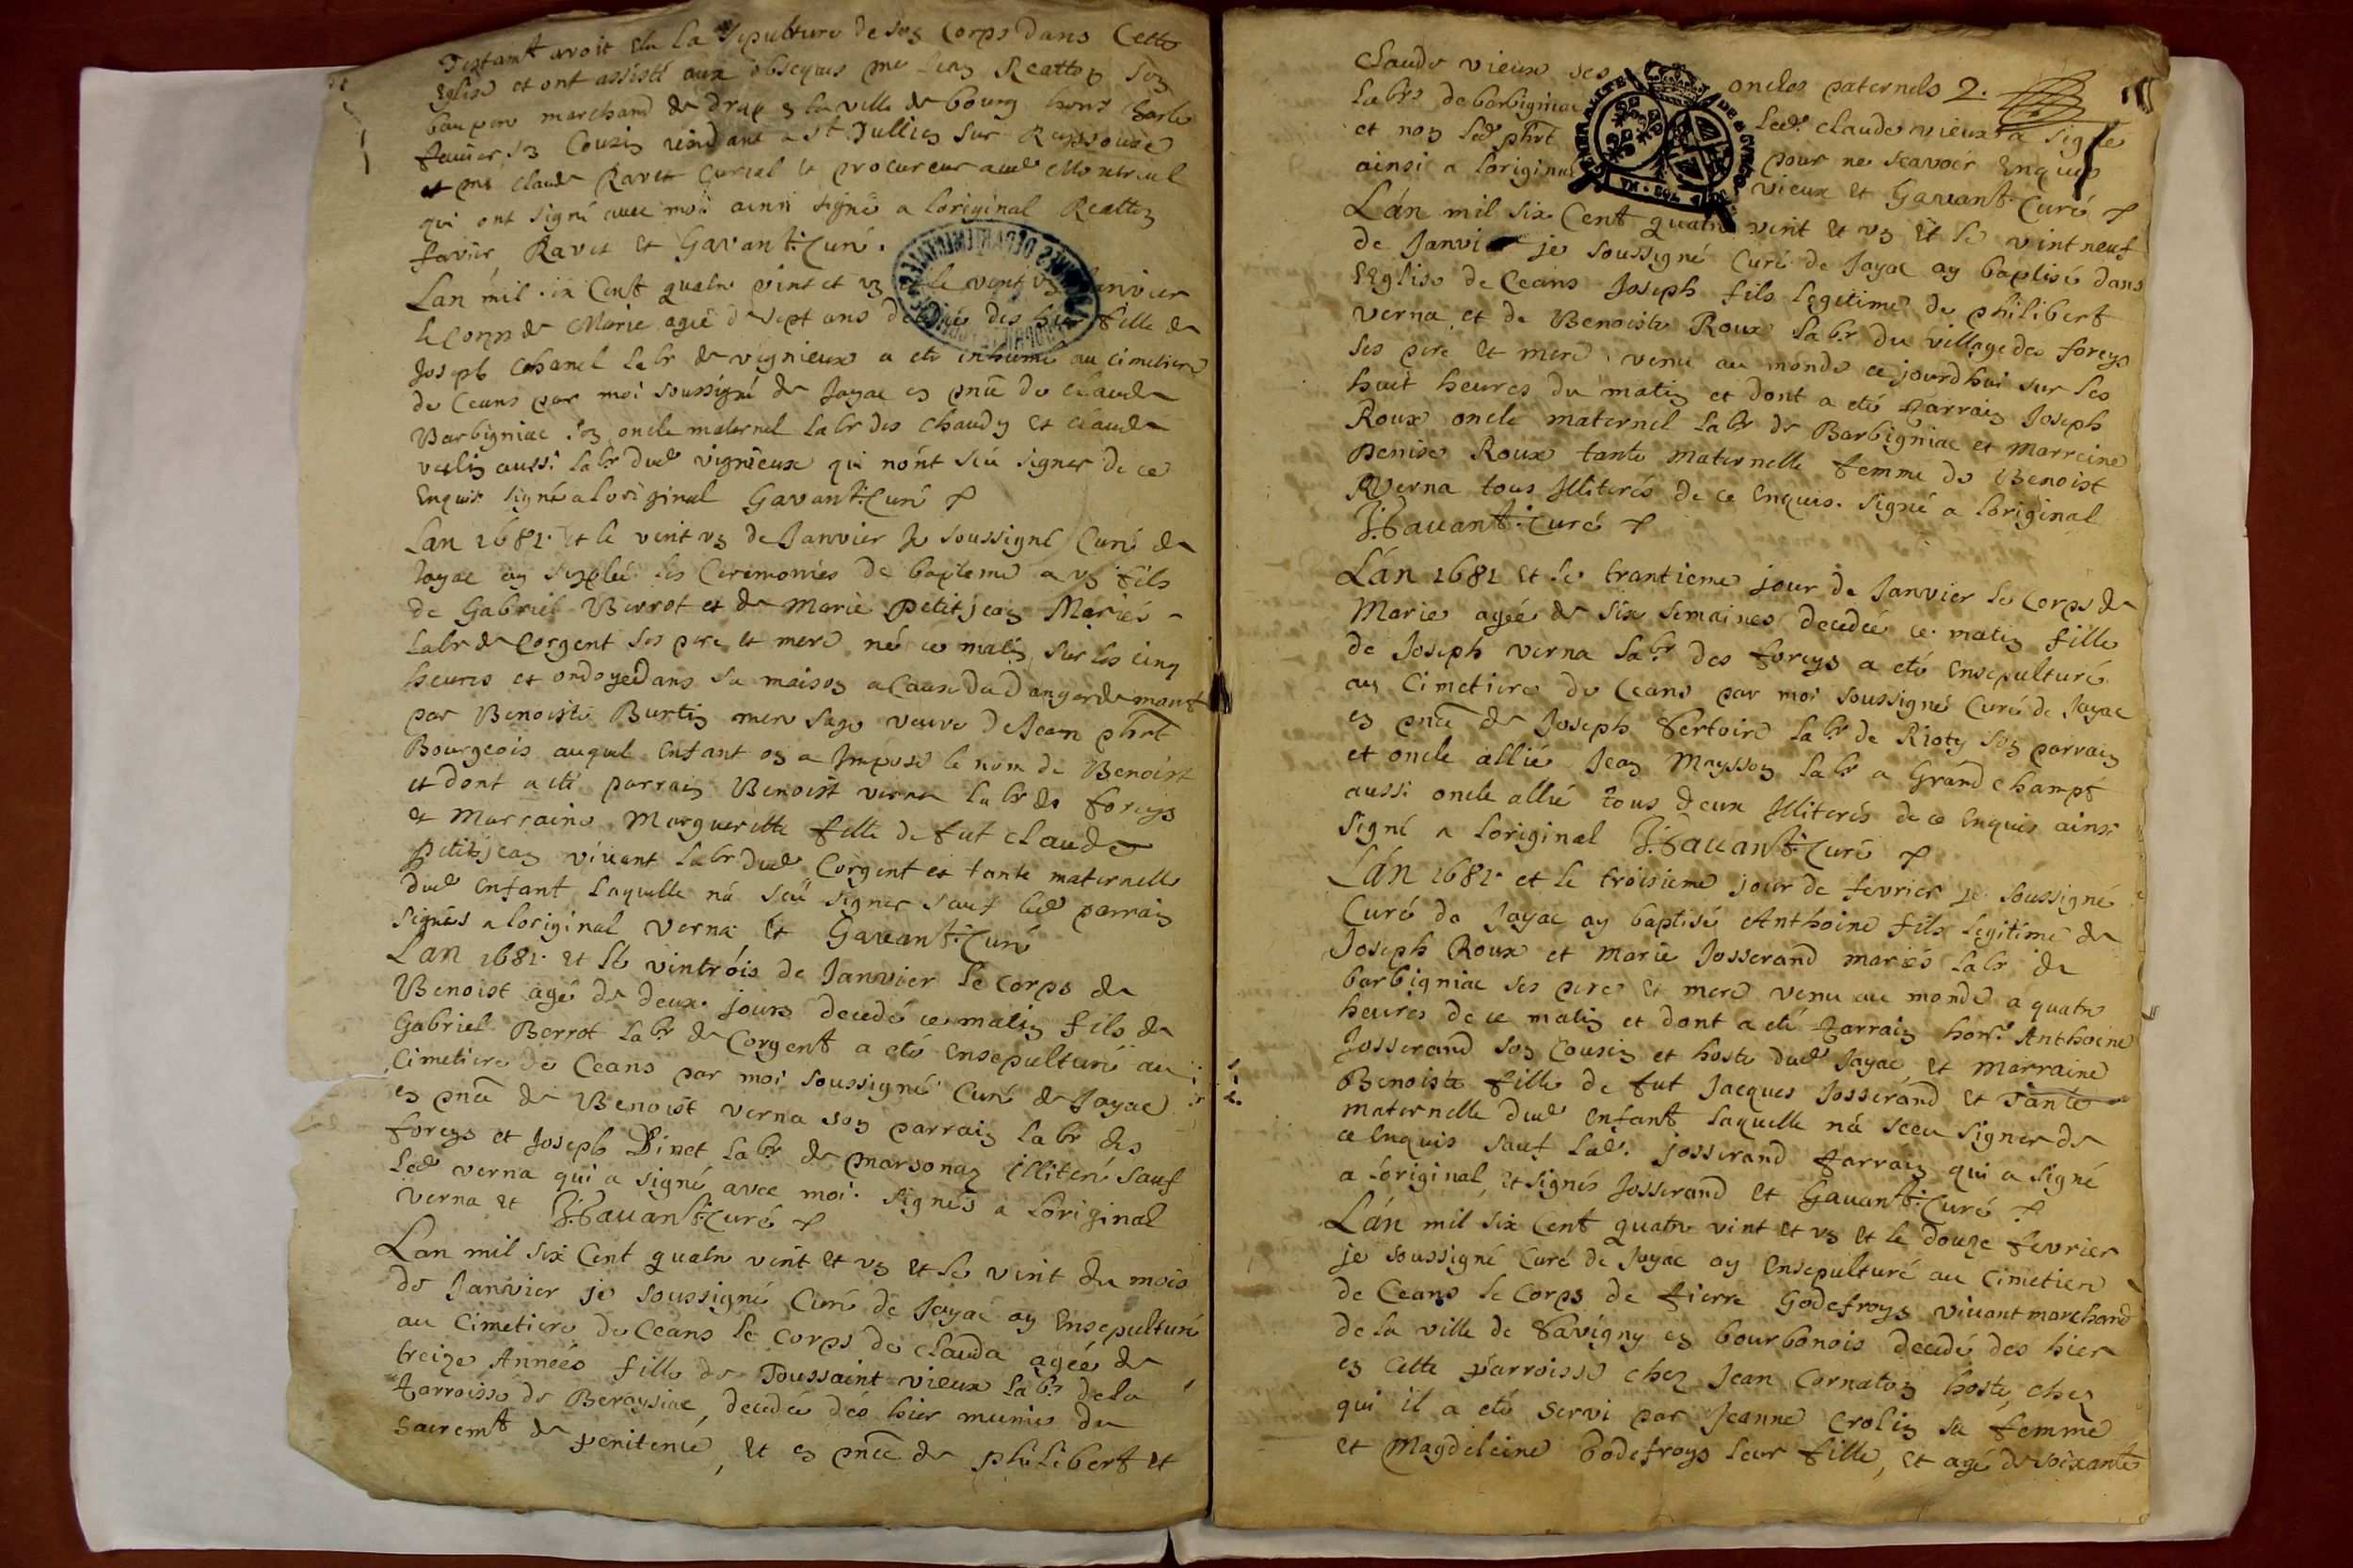 Testamt avoit elu la sepulture de son corps dans Cette
Eglise et ont assisté aux obseques me Reatton son
beau pere marchand de drap en la ville de bourg honr
favier son Cousin residant a St Jullien sur Reyssouze
et me claude Ravet Curial et procureur aud Montreal
qui ont signé avec moi ainsi signé a loriginal Reatton
favier Ravet et Gavant Curé.
Lan mil six Cent quatre vint et un et le vent un Janvier
le corps de Marie agee de sept ans decedée des hier fille de
Joseph Chanel labr de vignieux a ete inhumé au cimetiere
de Ceans par moi soussigné de Jayac en pnce de claude
Barbigniac son oncle maternel labr des chaudy et claude
veslin aussi labr dud vignieux qui nont sceu signer de ce
Enquis signé a loriginal Gavant Curé
Lan 1681 et le vent un de Janvier Je soussigné Curé de
Jayac ay supleé les Ceremonies de bapteme a un fils
de Gabriel Berrot et de Marie petitjean Mariés
labr de Corgent ses pere et mere né ce matin sur les cinq
heures et ondoyé dans sa maison a Cause du danger de mort
par Benoiste Burtin mere sage veuve de Jean phrt
Bourgeois auquel Enfant on a Imposé le nom de Benoist
et dont a eté parrain Benoist verna labr des foreys
et Marraine Marguerite fille de fut claude
petitjean vivant labr dud Corgent et tante maternelle
dud Enfant laquelle na sceu signer sauf led parrain
signés a loriginal Verna et Gavant Curé
Lan 1681 et le vintrois de Janvier le corps de
Benoist agé de deux jours decedé ce matin fils de
Gabriel Berrot labr de Corgent a eté Ensepulturé au
Cimetiere de Ceans par moi soussigné Curé de Jayac
en pnce de Benoist verna son parrain labr des
foreys et Joseph Dinet labr de marsonaz illiteré sauf
led verna qui a signé avec moi. signés a loriginal
verna et J: Gavant Curé
Lan mil six Cent quatre vint et un et le vint du mois
de Janvier je soussigné Curé de Jayac ay Ensepulturé
au Cimetiere de Ceans le corps de Clauda agée de
treize Années fille de Toussaint vieux labr de la
Parroisse de Bereysiac, decedée des hier munie du
Sacremt de penitence, et en pnce de philibert et
Claude vieux ses oncles paternels 2.
labrs de barbigniac led. claude vieux a signé
et non led phrt pour ne scavoir Enquis
ainsi a loriginal vieux et Gavant Curé
Lán mil six Cent quatre vint et un et le vintneuf
de Janvier je soussigné Curé de Jayac ay baptisé dans
lEglise de Ceans Joseph fils legitime de philibert
verna et de Benoiste Roux labr du village des foreys
ses pere et mere venu au monde ce jourdhui sur les
huit heures du matin et dont a eté Parrain Joseph
Roux oncle maternel labr de Barbigniac et Marreine
Denise Roux tante maternelle femme de Benoist
Verna tous Illiterés de ce Enquis. signé a loriginal
J: Gavant Curé
Lán 1681 et le trantieme jour de Janvier le corps de
Marie agée de six semaines decedée ce matin fille
de Joseph verna labr des foreys a eté Ensepulturé
au Cimetiere de Ceans par moi soussigné Curé de Jayac
en pnce de Joseph labr de Rioty son parrain
et oncle allié Jean Maysson labr a Grand champt
aussi oncle allié tous deux Illiterés de ce Enquis ainsi
signé a loriginal J: Gavant Curé
Lán 1681 et le troisieme jour de fevrier Je soussigné
Curé de Jayac ay baptisé Anthoine fils legitime de
Joseph Roux et Marie Josserand mariés labr de
barbigniac ses pere et mere venu au monde a quatre
heures de ce matin et dont a eté Parrain honr. Anthoine
Josserand son Cousin et hoste dud Jayac et Marraine
Benoiste fille de fut Jacques Josserand et Tante
maternelle dud Enfant laquelle ná sceu signer de
ce Enquis sauf led. josserand Parrain qui a signé
a loriginal, et signés Josserand et Gavant Curé
Lán mil six Cent quatre vint et un et le douze fevrier
je soussigné Curé de Jayac ay Ensepulturé au Cimetiere
de Ceans le Corps de Pierre Godefroys vivant marchand
de la ville de Savigny en bourbonois decedé des hier
en cette Parroisse chez Jean Cornaton hoste, chez
qui il a eté servi par Jeanne Crolin sa femme
et Magdeleine Godefroys leur fille, et agé de soixante